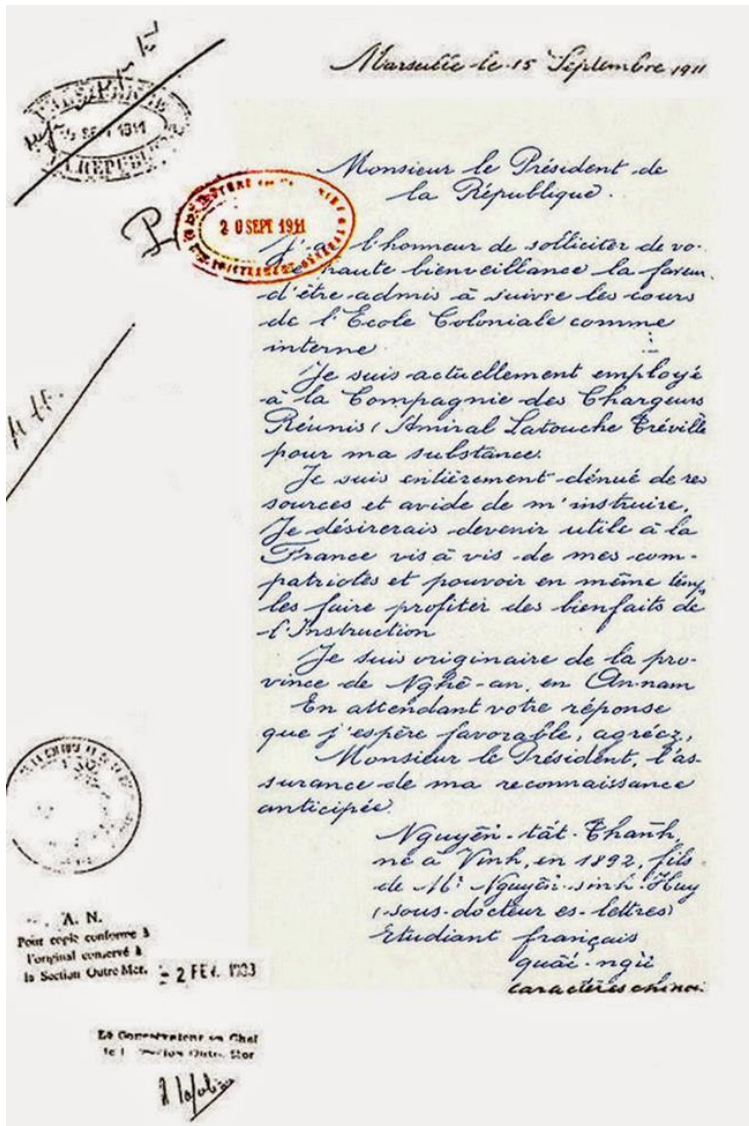 Marseille le 15 Septembre 1911
Monsieur le Président de
la République.
20 SEPT 1911
J'ai l'honneur de solliciter de vo-
haute bienveillance la faveur
d'être admis à suivre les cours
de l'Ecole Coloniale comme
interne
Je suis actuellement employé
à la Compagnie des Chargeurs
Réunis (Amiral Latouche Tréville
pour ma substance.
Je suis entièrement dénué de res
sources et avide de m'instruire.
Je désirerais devenir utile à la
France vis à vis de mes com-
patriotes et pouvoir en même temps
les faire profiter des bienfaits de
l'Instruction
Je suis originaire de la pro-
vince de Nghê-an, en An-nam
En attendant votre réponse
que j'espère favorable, agréez,
Monsieur le Président, l'as-
surance de ma reconnaissance
anticipée.
Nguyên-tât-Thành,
né à Vinh, en 1892, fils
de Mr Nguyên-sinh-Huy
(sous-docteur es-lettres)
Etudiant français
quâi-ngü
caractères chinois
A. N.
Pour copie conforme à
l'original conservé à
la Section Outre Mer.
- 2 FEV.
Le Conservateur en Chef